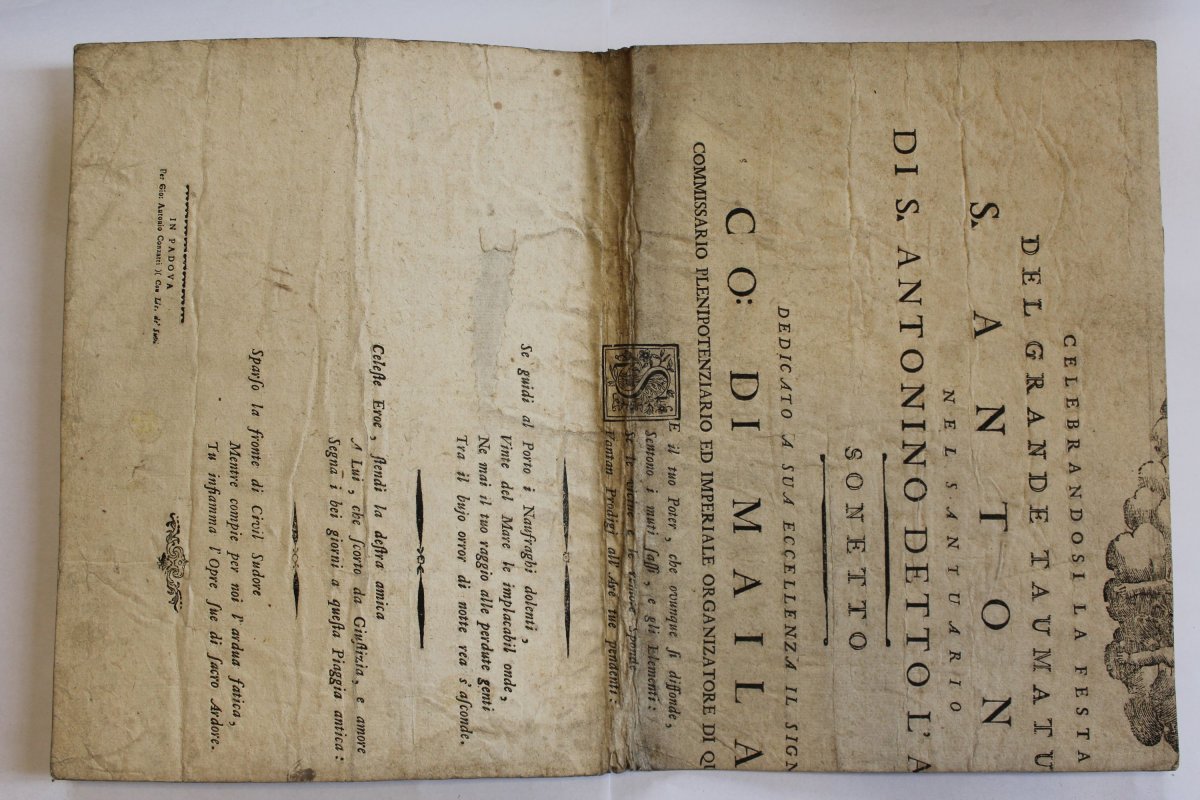 CELEBRANDOSI LA FESTA
DEL GRANDE TAUMATU
S. ANTON
NEL SANTUARIO
DI S. ANTONINO DETTO L'A
SONETTO
DEDICATO A SUA ECCELLENZA IL SIGN
CO: DI MAILA
COMMISSARIO PLENIPOTENZIARIO ED IMPERIALE ORGANIZATORE DI QU
SE il tuo Poter, che ovunque si diffonde,
Sentono i muti ſaſſi, e gli Elementi:
Se le
Vantan Prodigi all' Are tue pendenti:
Se guidi al Porto i Naufraghi dolenti,
Vinte del Mare le implacabil onde,
Ne mai il tuo raggio alle perdute genti
Tra il bujo orror di notte rea s' aſconde.
Celeſte Eroe, ſtendi la deſtra amica
A Lui, che ſcorto da Giuſtizia, e amore
Segnā i bei giorni a queſta Piaggia antica:
Sparſo la fronte di Civil Sudore
Mentre compie per noi l' ardua fatica,
Tu infiamma l' Opre ſue di ſacro Ardore.
IN PADOVA
Per Gio: Antonio Conzatti )( Con Lic. de' Sup.